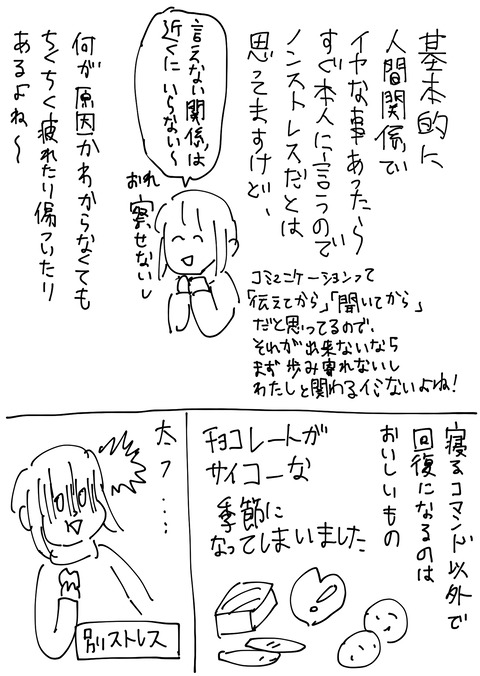 基本的に
人間関係で
イヤな事あったら
すぐ本人に言うので
ノンストレスだとは
思ってますけど、
言えない関係は
近くにいらない〜
おれ
察せないし
コミュニケーションって
「伝えてから」「聞いてから」
だと思ってるので、
それが出来ないなら
まず歩み寄れないし
わたしと関わるイミないよね!
何が原因かわからなくても
ちくちく疲れたり傷ついたり
あるよね〜
寝るコマンド以外で
回復になるのは
おいしいもの
チョコレートが
サイコーな
季節に
なってしまいました
太う…
別ストレス